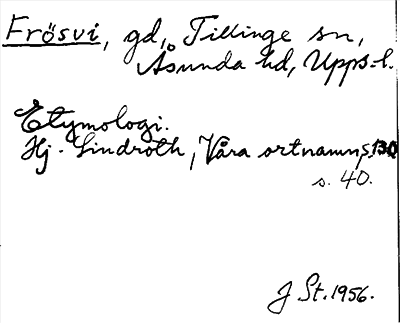 Frösvi, gd, Tillinge sn,
Åsunda hd, Upps. l.
Etymologi.
Hj. Lindroth, Våra ortnamn, s. 130
s. 40.
J St. 1956.